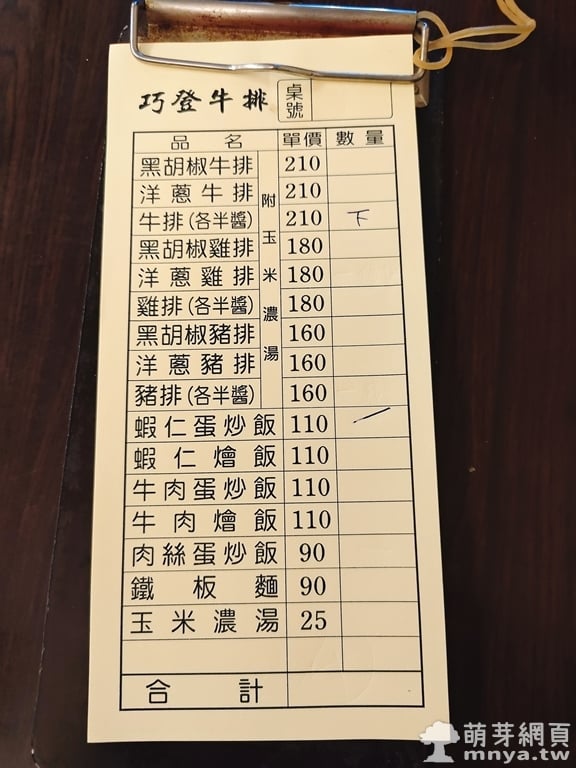 巧登牛排 桌號
品名 單價 數量
黑胡椒牛排 210
洋蔥牛排 210
牛排(各半醬) 210 下
黑胡椒雞排 180
洋蔥雞排 180
雞排(各半醬) 180
黑胡椒豬排 160
洋蔥豬排 160
豬排(各半醬) 160
附玉米濃湯
蝦仁蛋炒飯 110 一
蝦仁燴飯 110
牛肉蛋炒飯 110
牛肉燴飯 110
肉絲蛋炒飯 90
鐵板麵 90
玉米濃湯 25
合計
萌芽網頁
mnya.tw